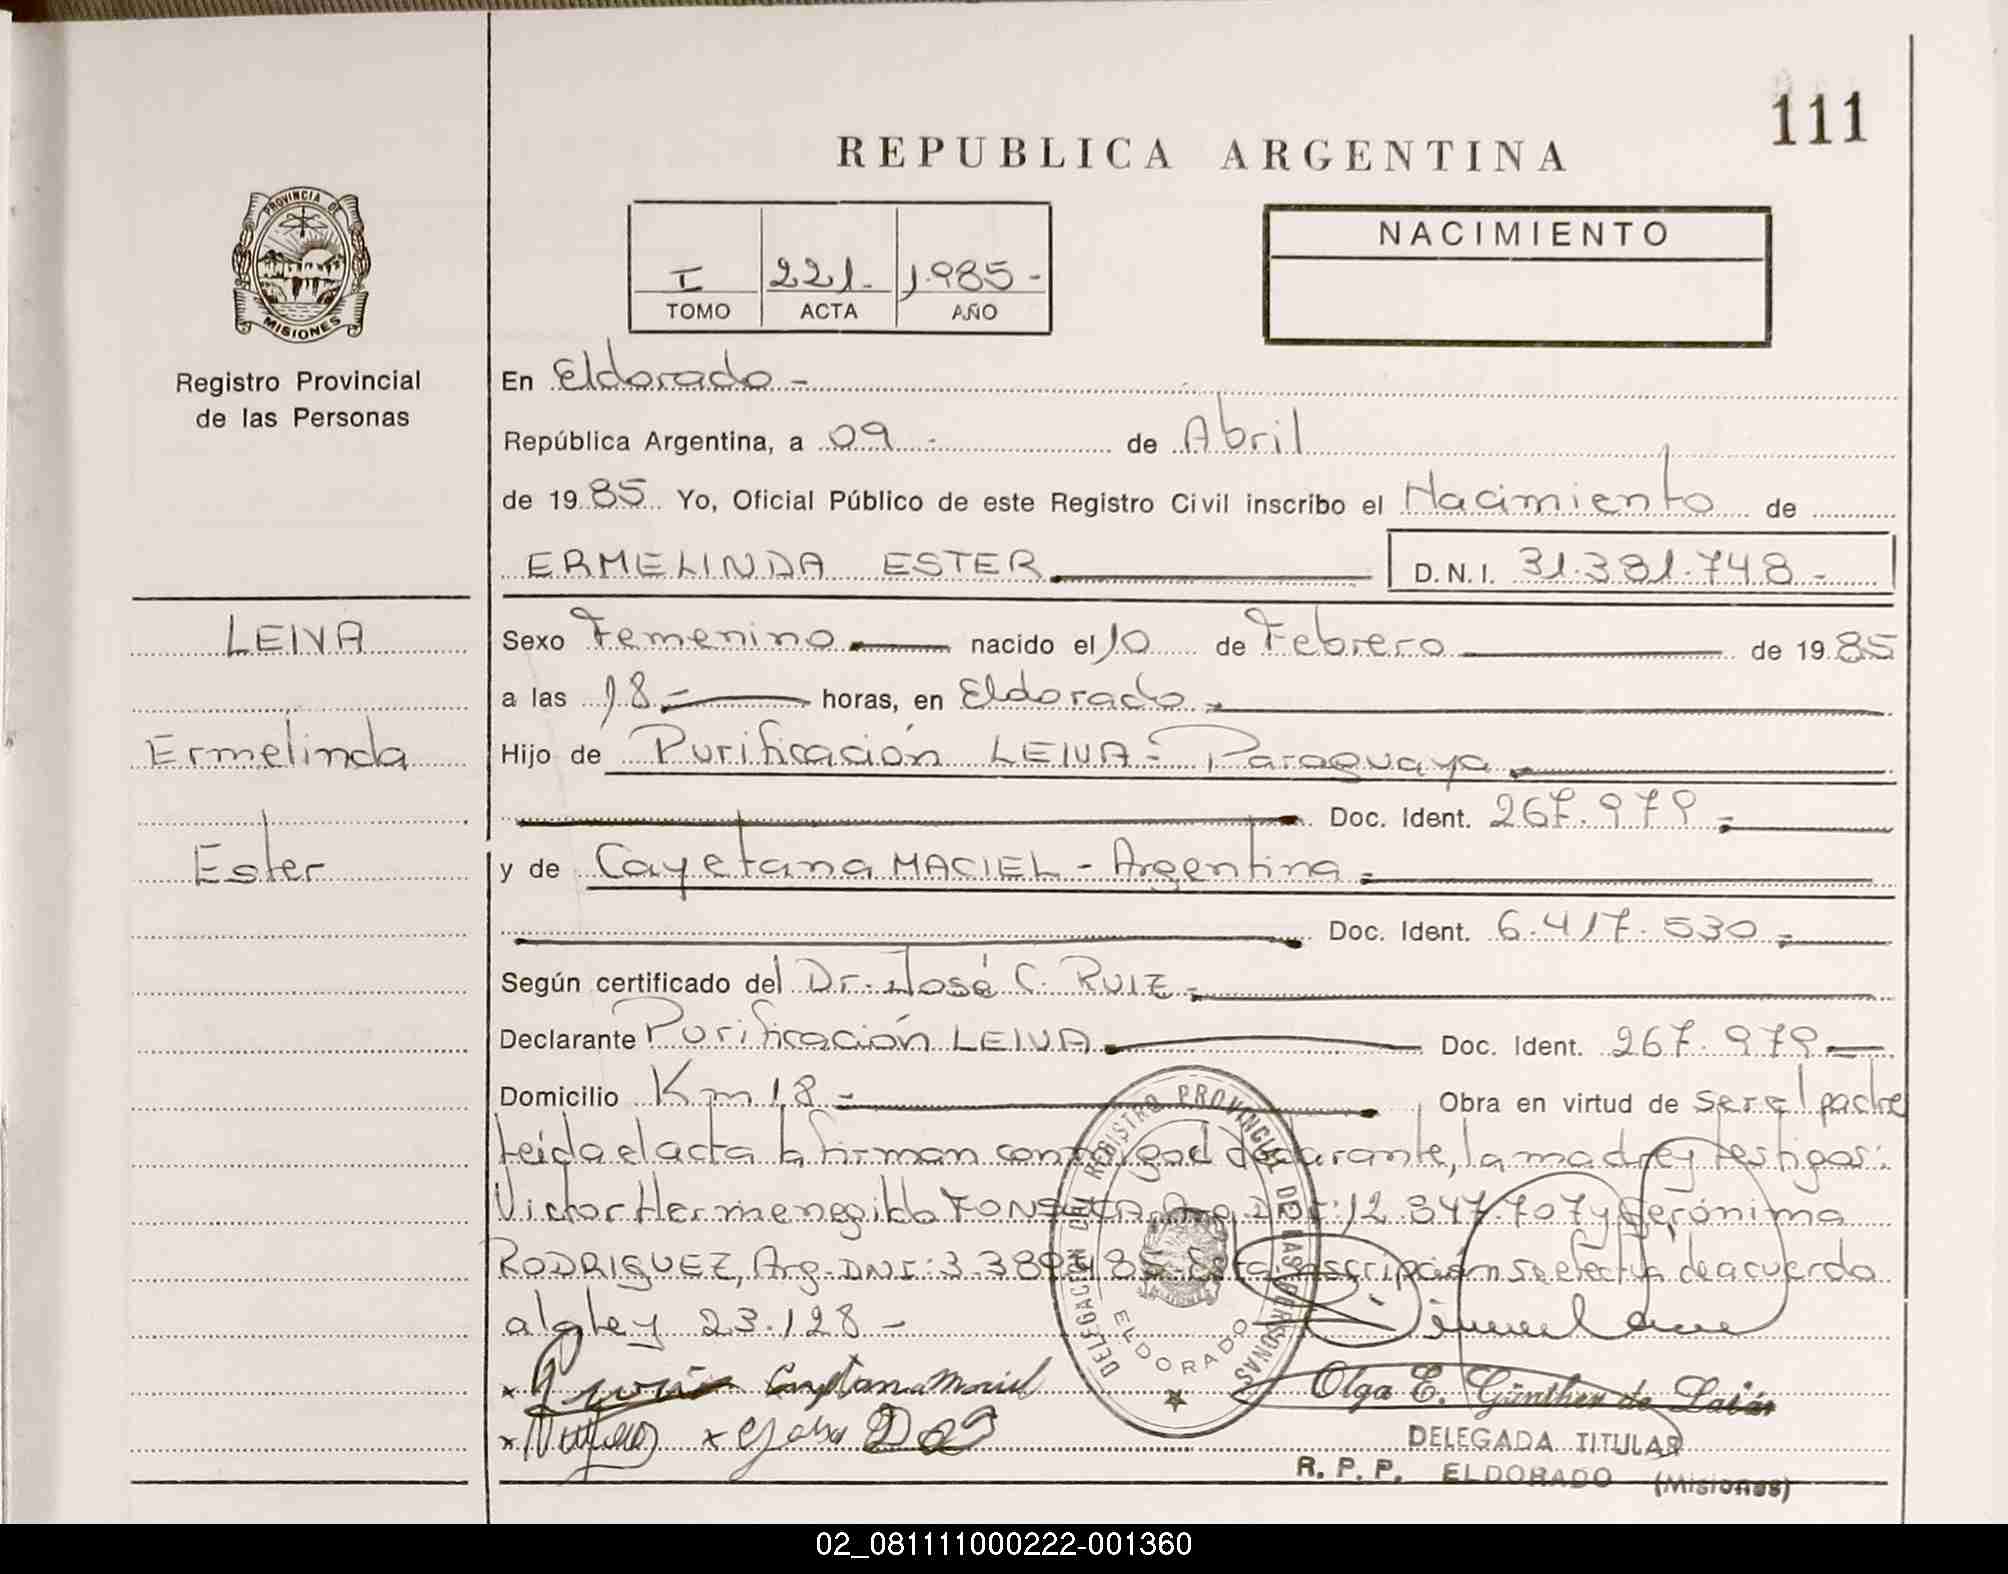 111
REPUBLICA ARGENTINA
PROVINCIA DE
MISIONES
Registro Provincial
de las Personas
I 221.- 1.985-
TOMO ACTA AÑO
NACIMIENTO
En Eldorado-
República Argentina, a 09.- de Abril
de 1985 Yo, Oficial Público de este Registro Civil inscribo el Nacimiento de
ERMELINDA ESTER D.N.I. 31.381.748-
LEIVA
Ermelinda
Ester
Sexo Femenino nacido el 10 de Febrero de 1985
a las 18- horas, en Eldorado
Hijo de Purificación LEIVA- Paraguaya
Doc. Ident. 267.979-
y de Cayetana MACIEL - Argentina
Doc. Ident. 6.417.530-
Según certificado del Dr. José C. RUIZ-
Declarante Purificación LEIVA Doc. Ident. 267.979
Domicilio Km 18- Obra en virtud de ser el padre
Leida el acta la firman conmigo el declarante, la madre y testigos:
Victor Hermenegildo FONSECA, Arg. DNI: 12.347.707 y Gerónima
RODRIGUEZ, Arg. DNI: 3.389.185- Esta inscripción se efectua de acuerdo
a la ley 23.128-
x Cayetana Maciel
x x
DELEGACION DEL REGISTRO PROVINCIAL DE LAS PERSONAS
ELDORADO
Olga E. Günther de
DELEGADA TITULAR
R. P. P. ELDORADO (Misiones)
02_081111000222-001360